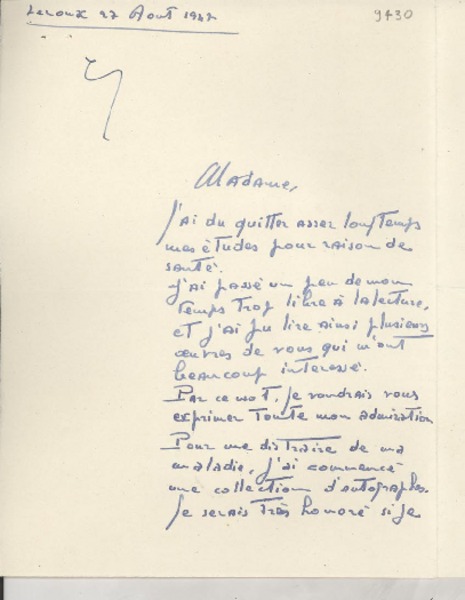 Leroux 27 Août 1947
9430
Madame,
J'ai du quitter assez longtemps
mes études pour raison de
santé.
J'ai passé un peu de mon
temps trop libre à la lecture,
et j'ai pu lire ainsi plusieurs
œuvres de vous qui m'ont
beaucoup intéressé.
Par ce mot, je voudrais vous
exprimer toute mon admiration
Pour me distraire de ma
maladie, j'ai commencé
une collection d'autographes.
Je serais très honoré si je